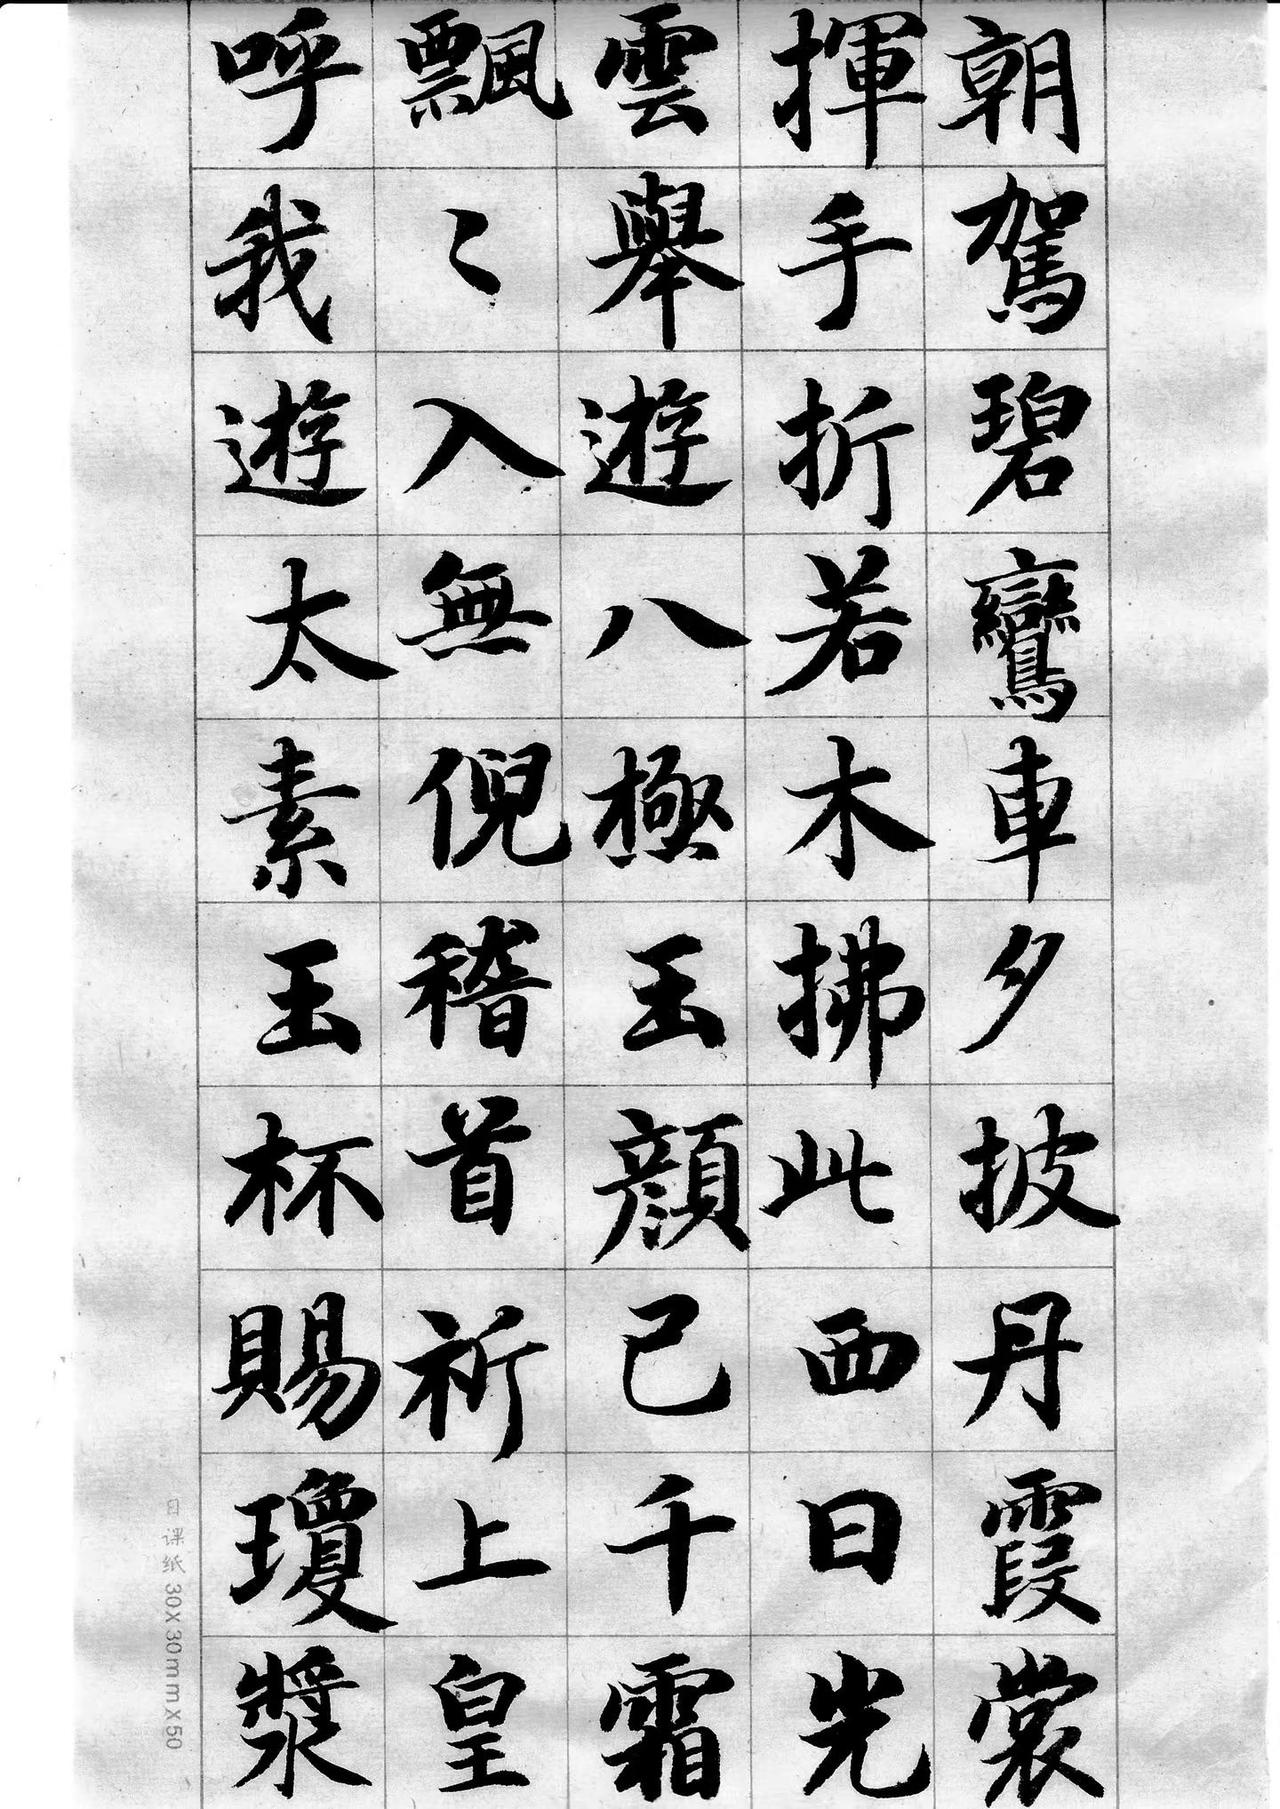 朝駕碧鸞車夕披丹霞裳
揮手折若木拂此西日光
雲舉遊八極玉顏已千霜
飄〻入無倪稽首祈上皇
呼我遊太素玉杯賜瓊漿
日课纸 30X30mmX50